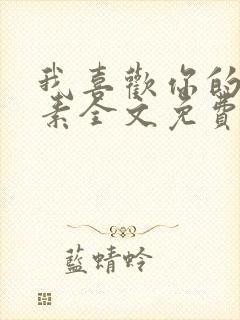 我喜歡你的
素全文免費
藍蜻蛉